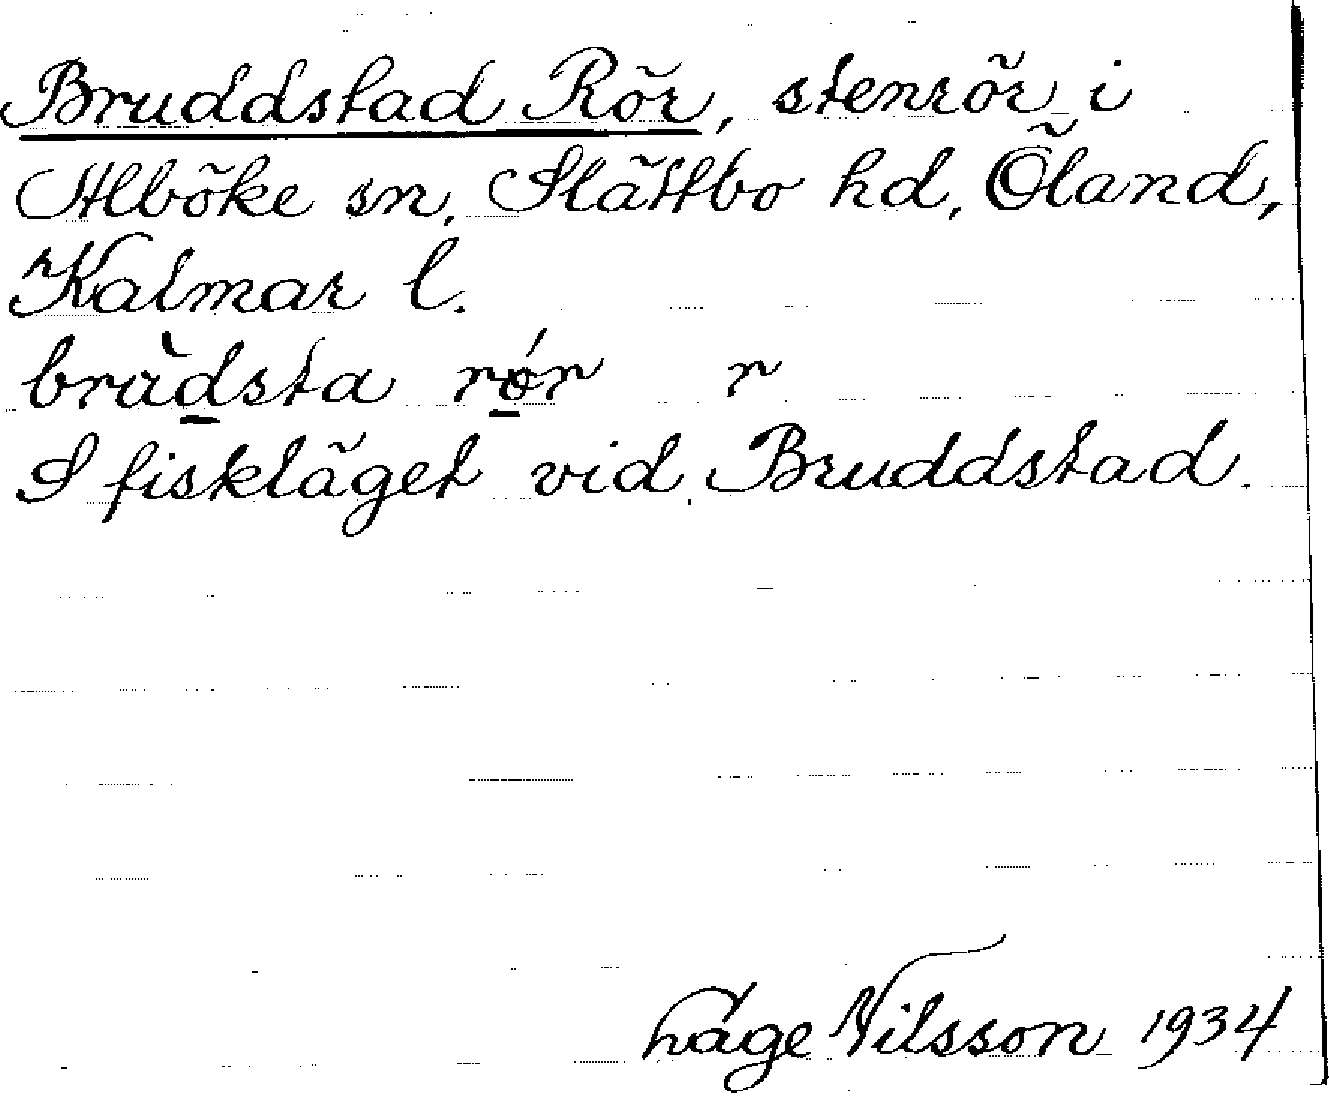 Bruddstad Rör, stenrör i
Alböke sn, Slättbo hd, Öland,
Kalmar l.
bràdsta rǿr r
I fiskläget vid Bruddstad.
Håge Nilsson 1934